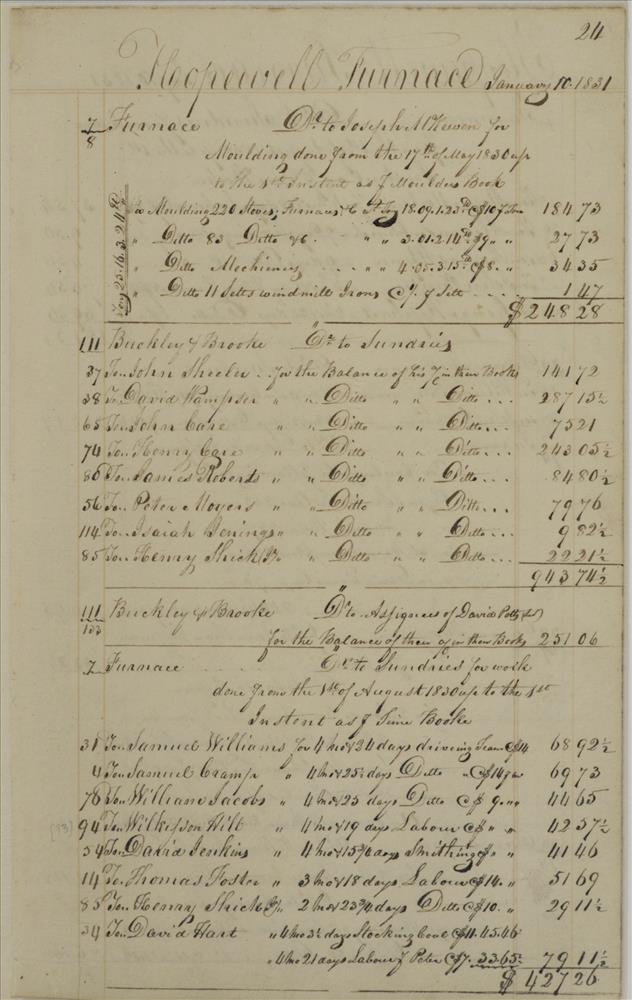 24
Hopewell Furnace January 10. 1831
7/8 Furnace Dr. to Joseph McKewen for
Moulding done from the 17th of May 1830 up
to the 1st Instant as Moulders Book
Moulding 220 Stoves; Furnaces &c 18.09.1.23 @ $10 184 73
" Ditto 83 Ditto &c. " " 3.01.2.14 @ $9 " " 27 73
" Ditto Machinery .... " " 4.05.3.15 @ $8. " 34 35
" Ditto 11 Setts windmill Irons Sett .... 1 47
Ton 23.16.3.24
$ 248 28
111 Buckley & Brooke Dr. to Sundries
37 To John Sheeler .. for the Balance of his in their Books 141 72
38 To David Wampser " " Ditto " " Ditto... 287 15½
65 To John Care " " Ditto " " Ditto... 75 21
74 To Henry Care " " Ditto " " Ditto... 243 05½
80 To James Roberts " " Ditto " " Ditto... 84 80½
56 To Peter Moyers " " Ditto " " Ditto... 79 76
114 To Isaiah Jenings " " Ditto " " Ditto... 9 82½
85 To Henry Shick Jr. " " Ditto " " Ditto... 22 21½
943 74½
111/133 Buckley & Brooke Dr. to Assignees of David Potts
for the Balance of their in their Books 251 06
7 Furnace .... Dr. to Sundries for work
done from the 1st of August 1830 up to the 1st
Instant as Time Booke
31 To Samuel Williams for 4 mo & 24 days driveing Team @ $14 68 92½
4 To Samuel Cramp " 4 mo & 25½ days Ditto " @ $14 69 73
76 To William Jacobs " 4 mo & 25 days Ditto @ $ 9. " " 44 65
94 To Wilkinson Hilt " 4 mo & 19 days Labour @ $ " " 42 57½
54 To David Jenkins " 4 mo & 15¾ days Smithing @ $ " " 41 46
14 To Thomas Foster " 3 mo & 18 days Labour @ $14. " 51 69
85 To Henry Shick Jr. " 2 mo & 23¾ days Ditto @ $10. " 29 11½
34 To David Hart " 4 mo 3½ days Stocking Coal @ $11. 45.46
" 4 mo 21 days Labour Peter @ $7. 33.65½ 79 11½
$ 427 26